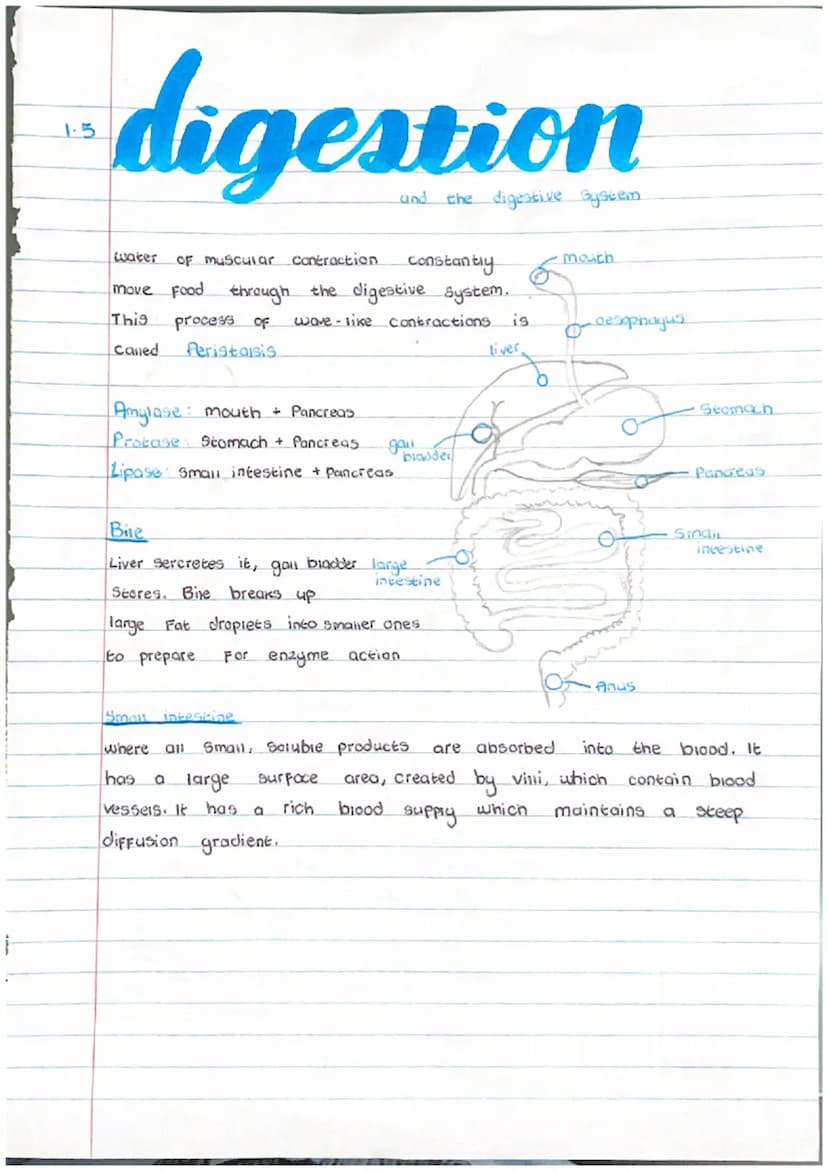 1.5
digestion
and the digestive System
water of muscular contraction constantly
move food through the digestive system.
This process of wave-like contractions is
called Peristalsis
Amylase: mouth + Pancreas
Protase: Stomach + Pancreas
Lipase: Small intestine + Pancreas
Bile
Liver sercretes it, gall bladder
Stores. Bile breaks up
large Fat droplets into smaller ones
to prepare For enzyme action
mouth
oesophagus
liver
Stomach
gall
bladder
Pancreas
Small
intestine
large
intestine
Anus
Small intestine
where all Small, Soluble products are absorbed into the blood. It
has a large surface area, created by villi, which contain blood
vessels. It has a rich blood supply which maintains a steep
diffusion gradient.